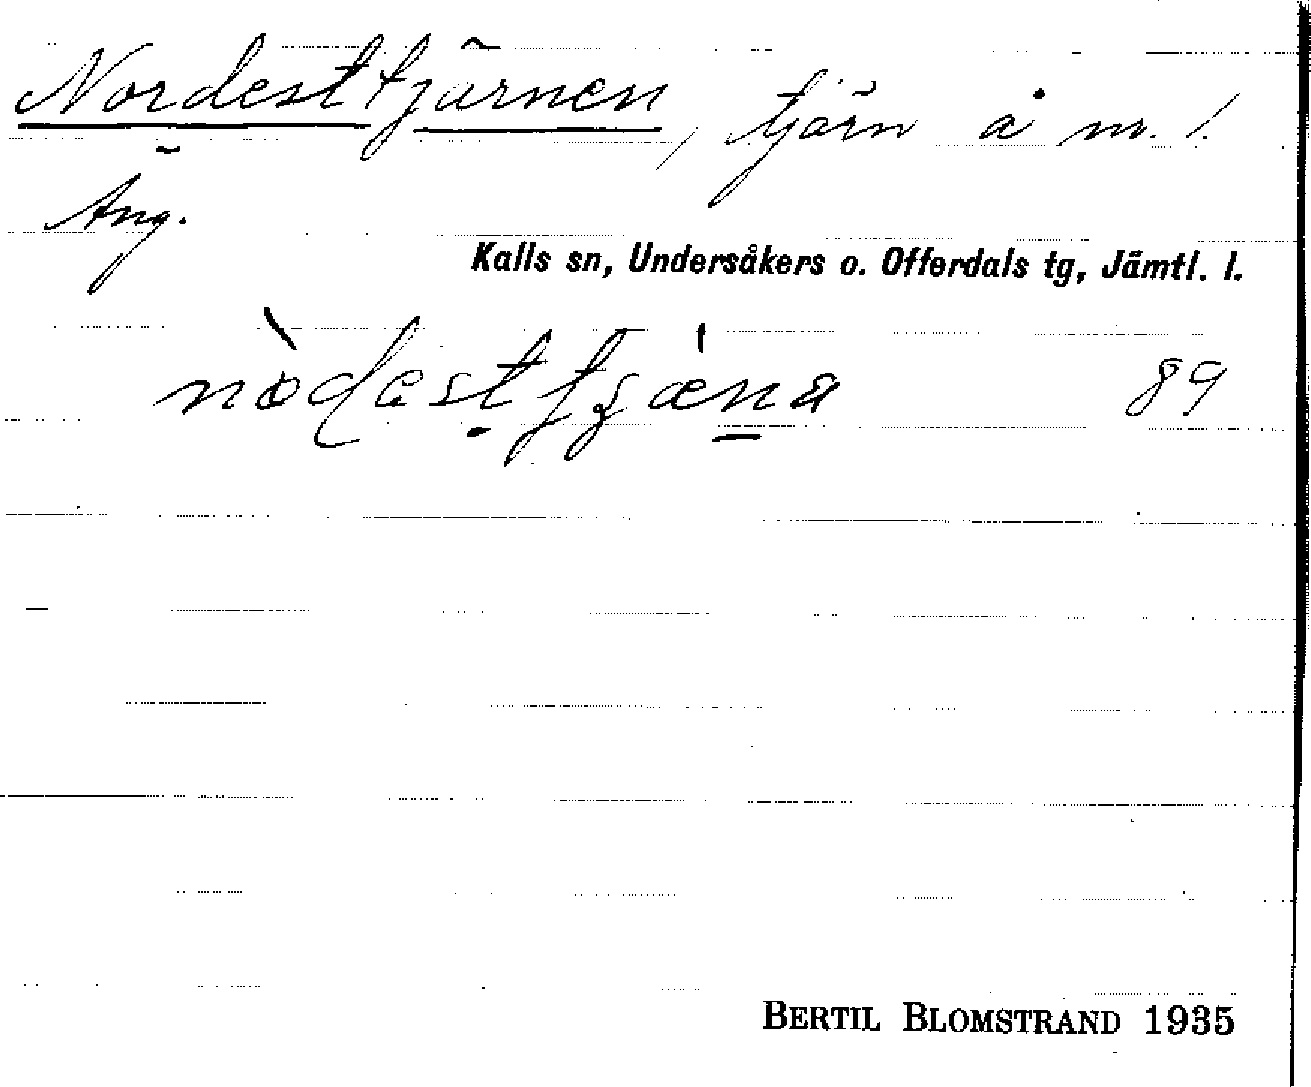 Nordesttjärnen, tjärn å nr. 1.
Äng.
Kalls sn, Undersåkers o. Offerdals tg, Jämtl. l.
89
BERTIL BLOMSTRAND 1935